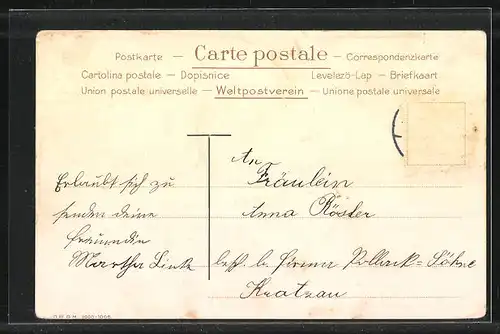 Postkarte — Carte postale — Correspondenzkarte
Cartolina postale — Dopisnice Levelező-Lap — Briefkaart
Union postale universelle — Weltpostverein — Unione postale universale
An
Fräulein
Anna Röster
besch. b. Firma Pollack-Söhne
Kratzau
Erlaubt sich zu
senden deine
Freundin
Martha Link